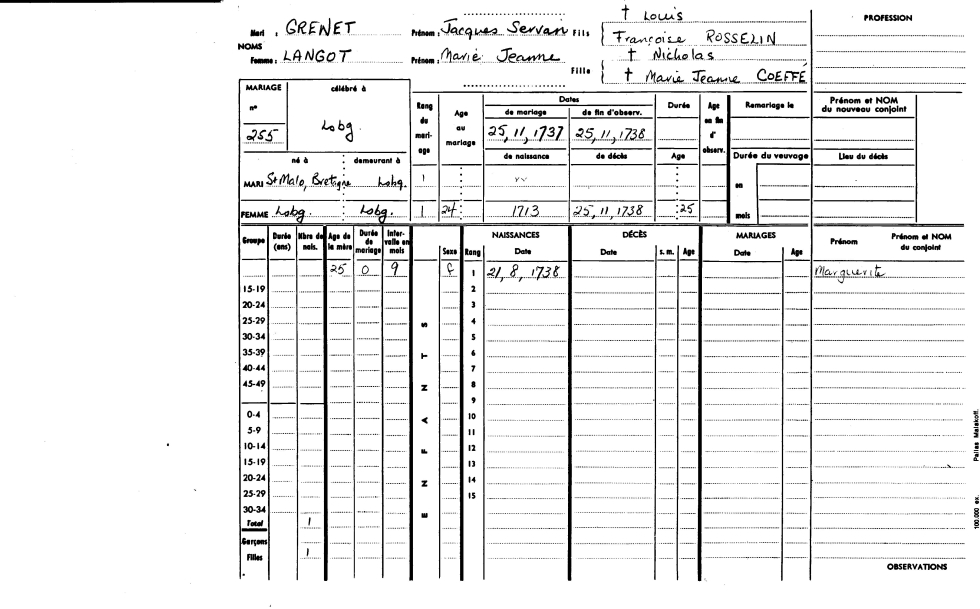 Mari : GRENET Prénom : Jacques Servan Fils { † Louis
Françoise ROSSELIN
NOMS
Femme : LANGOT Prénom : Marie Jeanne Fille { † Nicholas
† Marie Jeanne COEFFÉ
PROFESSION
MARIAGE célébré à
n°
255 Lobg.
né à demeurant à
MARI St Malo, Bretagne Lobg.
FEMME Lobg. Lobg.
Rang du mariage Age au mariage Dates Durée Age en fin d'observ. Remariage le Prénom et NOM du nouveau conjoint
de mariage de fin d'observ.
25, 11, 1737 25, 11, 1738
de naissance de décès Age Durée du veuvage Lieu du décès
1
en
1 24 1713 25, 11, 1738 25
mois
Groupe Durée (ans) Nbre de nais. Age de la mère Durée de mariage Intervalle en mois Sexe Rang NAISSANCES Date DÉCÈS Date s. m. Age MARIAGES Date Age Prénom Prénom et NOM du conjoint
25 0 9 f 1 21, 8, 1738 Marguerite
15-19 2
20-24 3
25-29 4
30-34 5
35-39 6
40-44 7
45-49 8
9
0-4 10
5-9 11
10-14 12
15-19 13
20-24 14
25-29 15
30-34
Total 1
Garçons
Filles 1
ENFANTS
OBSERVATIONS
100,000 ex. Pallas Malakoff.